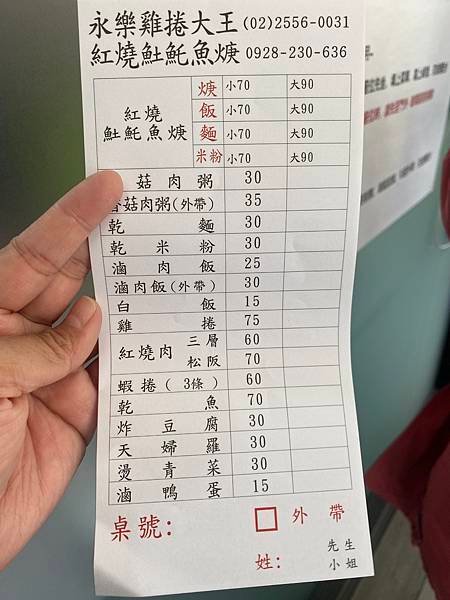 永樂雞捲大王(02)2556-0031
紅燒𩵚魠魚焿 0928-230-636
紅燒𩵚魠魚焿
焿 小70 大90
飯 小70 大90
麵 小70 大90
米粉 小70 大90
菇肉粥 30
香菇肉粥(外帶) 35
乾麵 30
乾米粉 30
滷肉飯 25
滷肉飯(外帶) 30
白飯 15
雞捲 75
紅燒肉 三層 60
松阪 70
蝦捲(3條) 60
乾魚 70
炸豆腐 30
天婦羅 30
燙青菜 30
滷鴨蛋 15
桌號: □ 外帶
姓: 先生
小姐